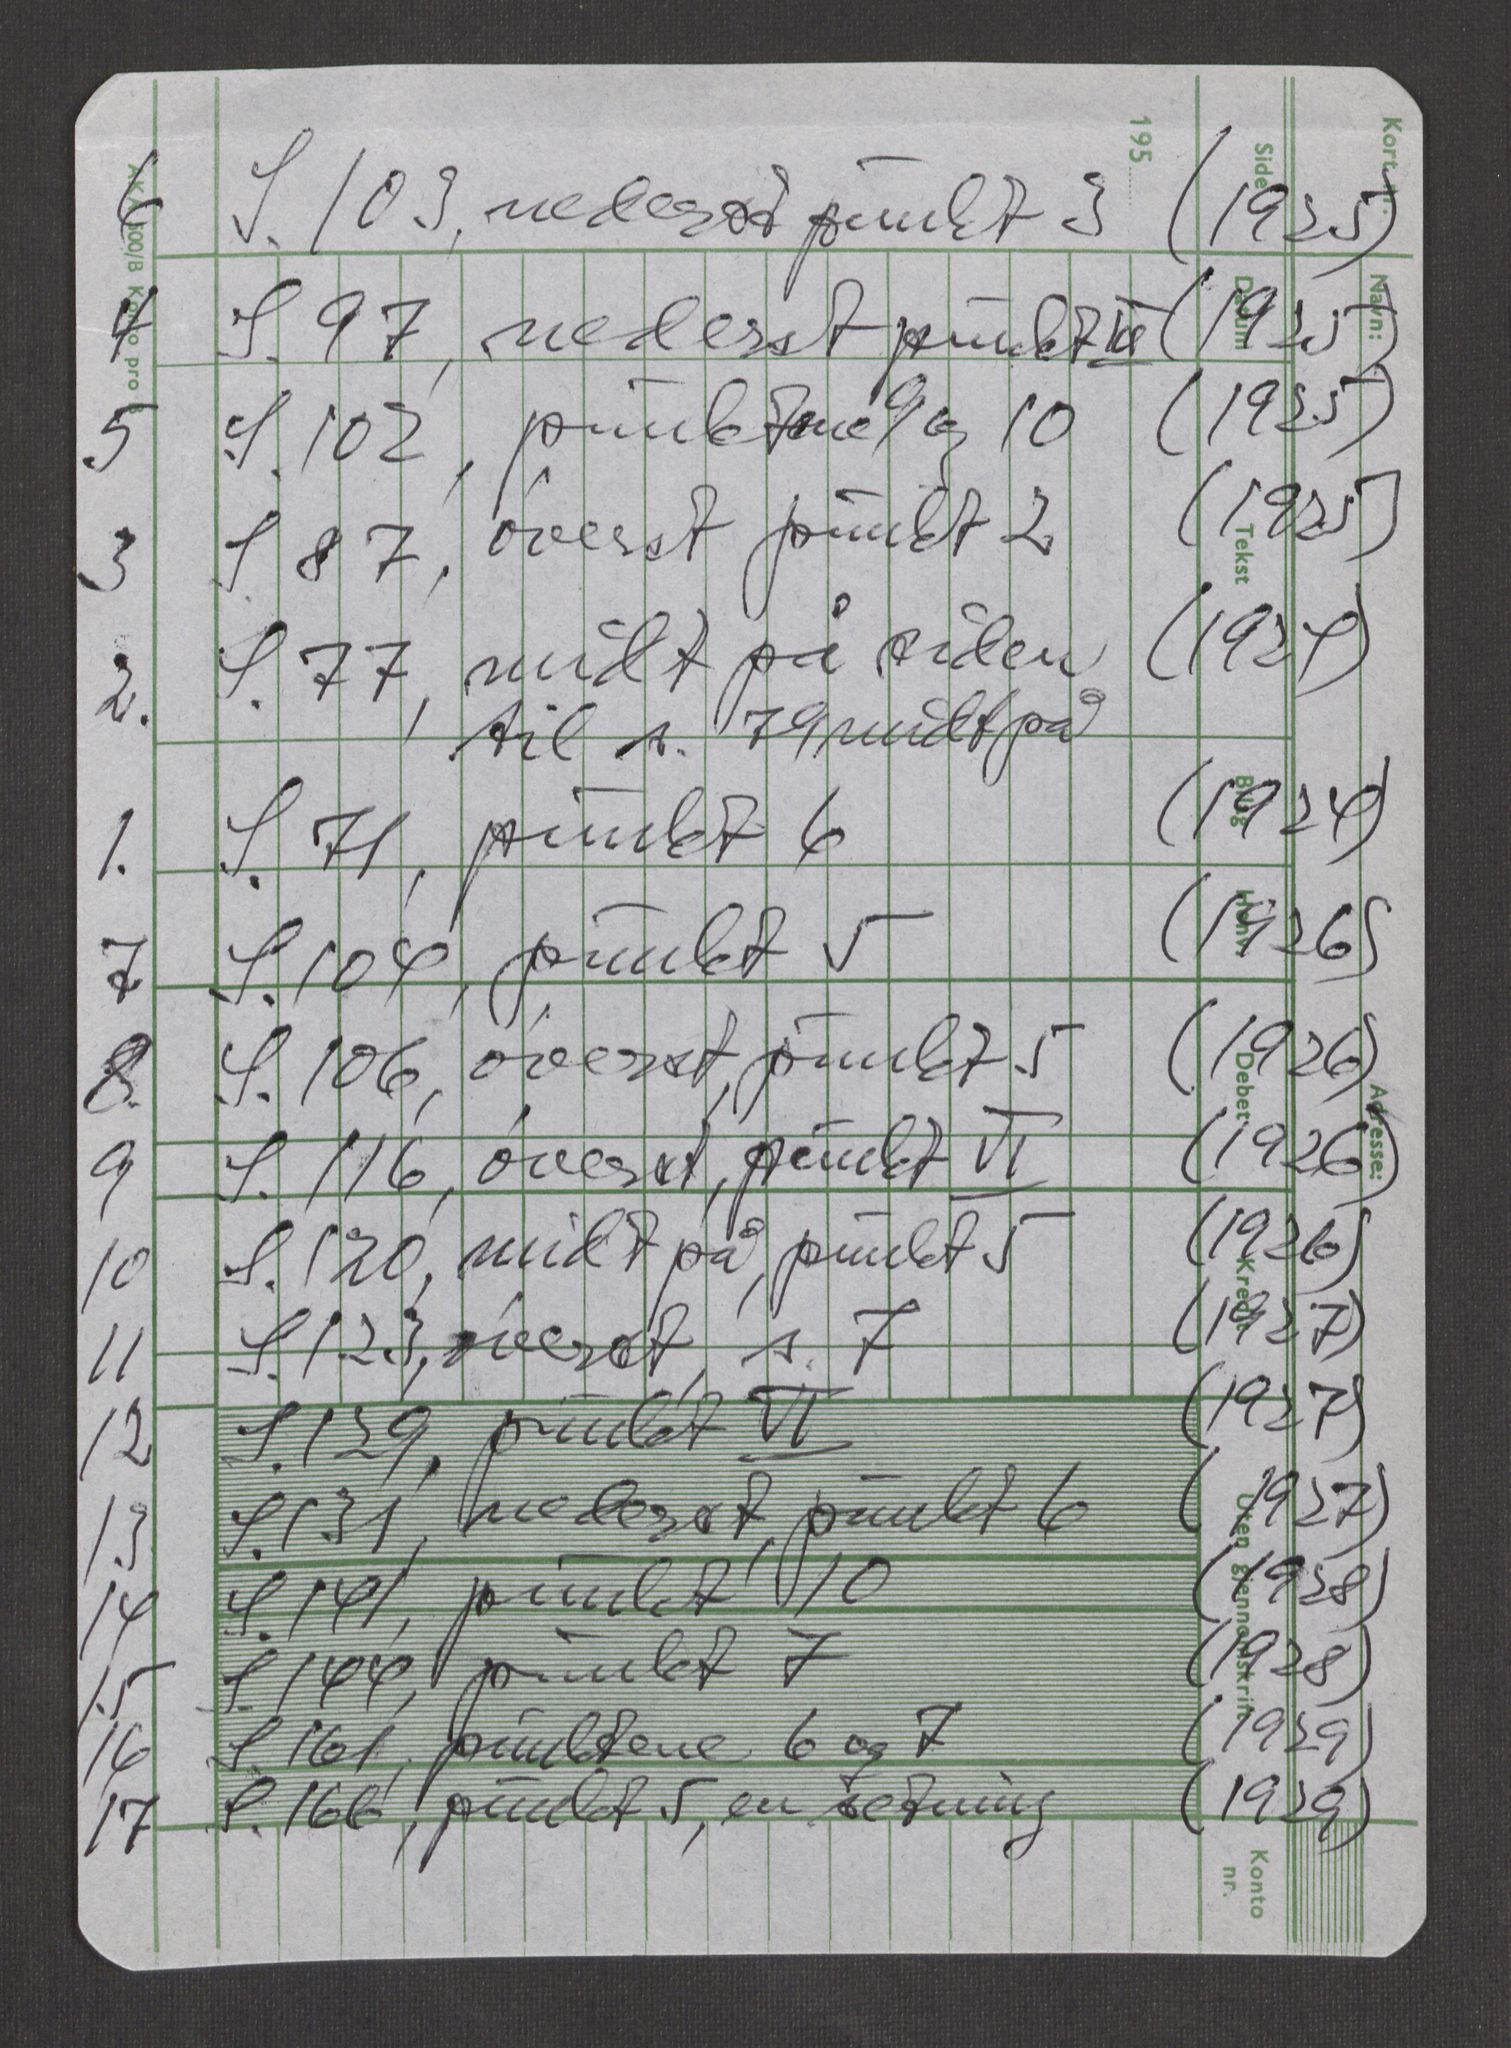 6 S. 103, nederst punkt 3 (1925)
4 S. 97, nederst punkt VI (1925)
5 S. 102, punktene 9 og 10 (1925)
3 S 87, øverst punkt 2 (1925)
2. S. 77, midt på siden (1924)
til s. 79 midt på
1. S. 71, punkt 6 (1924)
7 S. 104, punkt 5 (1926)
8. S. 106, øverst, punkt 5 (1926)
9 S. 116, øverst, punkt VI (1926)
10 S. 120, midt på, punkt 5 (1926)
11 S. 123, øverst, s. 7 (1927)
12 S. 129, punkt VI (1927)
13 S. 131, nederst, punkt 6 (1927)
14 S. 141, punkt 10 (1928)
15 S. 144, punkt 7 (1928)
16 S. 161, punktene 6 og 7 (1929)
17 S. 166, punkt 5, en setning (1929)
195
Kort nr.
Side
Navn:
Datum
Tekst
Bilag
Adresse:
Debet
Kredit
Uten gjennomskrift
Konto
nr.